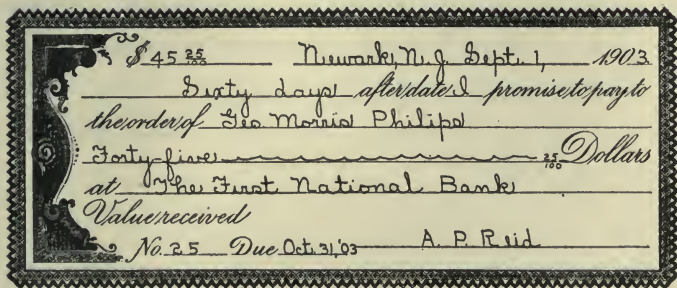 $ 45 25/100 Newark, N. J. Sept. 1, 1903
Sixty days after date I promise to pay to
the order of Geo Morris Philips
Forty-five 25/100 Dollars
at The First National Bank
Value received
No. 25 Due Oct. 31, '03 A. P. Reid